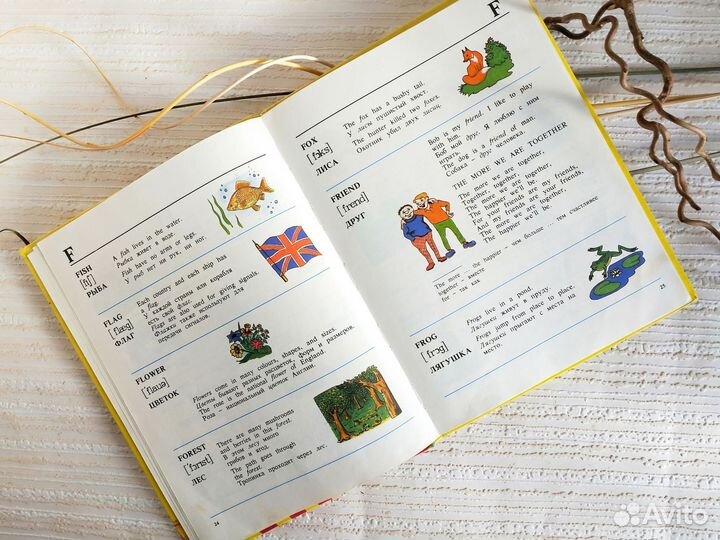 F
FISH
[fɪʃ]
РЫБА
A fish lives in the water.
Рыба живёт в воде.
Fish have no arms or legs.
У рыб нет ни рук, ни ног.
FLAG
[flæg]
ФЛАГ
Each country and each ship has
a flag.
У каждой страны или корабля
есть свой флаг.
Flags are also used for giving signals.
Флажки также используют для
передачи сигналов.
FLOWER
[flauə]
ЦВЕТОК
Flowers come in many colours, shapes, and sizes.
Цветы бывают разных расцветок, форм и размеров.
The rose is the national flower of England.
Роза — национальный цветок Англии.
FOREST
['fɔrɪst]
ЛЕС
There are many mushrooms
and berries in this forest.
В этом лесу много
грибов и ягод.
The path goes through
the forest.
Тропинка проходит через лес.
24
F
FOX
[fɔks]
ЛИСА
The fox has a bushy tail.
У лисы пушистый хвост.
The hunter killed two foxes.
Охотник убил двух лисиц.
FRIEND
[frend]
ДРУГ
Bob is my friend. I like to play
with him.
Боб мой друг. Я люблю с ним
играть.
The dog is a friend of man.
Собака — друг человека.
THE MORE WE ARE TOGETHER
The more we are together,
Together, together,
The more we are together,
The happier we'll be.
For your friends are my friends,
And my friends are your friends,
The more we are together,
The happier we'll be.
The more ... the happier — чем больше ... тем счастливее
together — вместе
for — так как
FROG
[frɔg]
ЛЯГУШКА
Frogs live in a pond.
Лягушки живут в пруду.
Frogs jump from place to place.
Лягушки прыгают с места на
место.
25
Avito